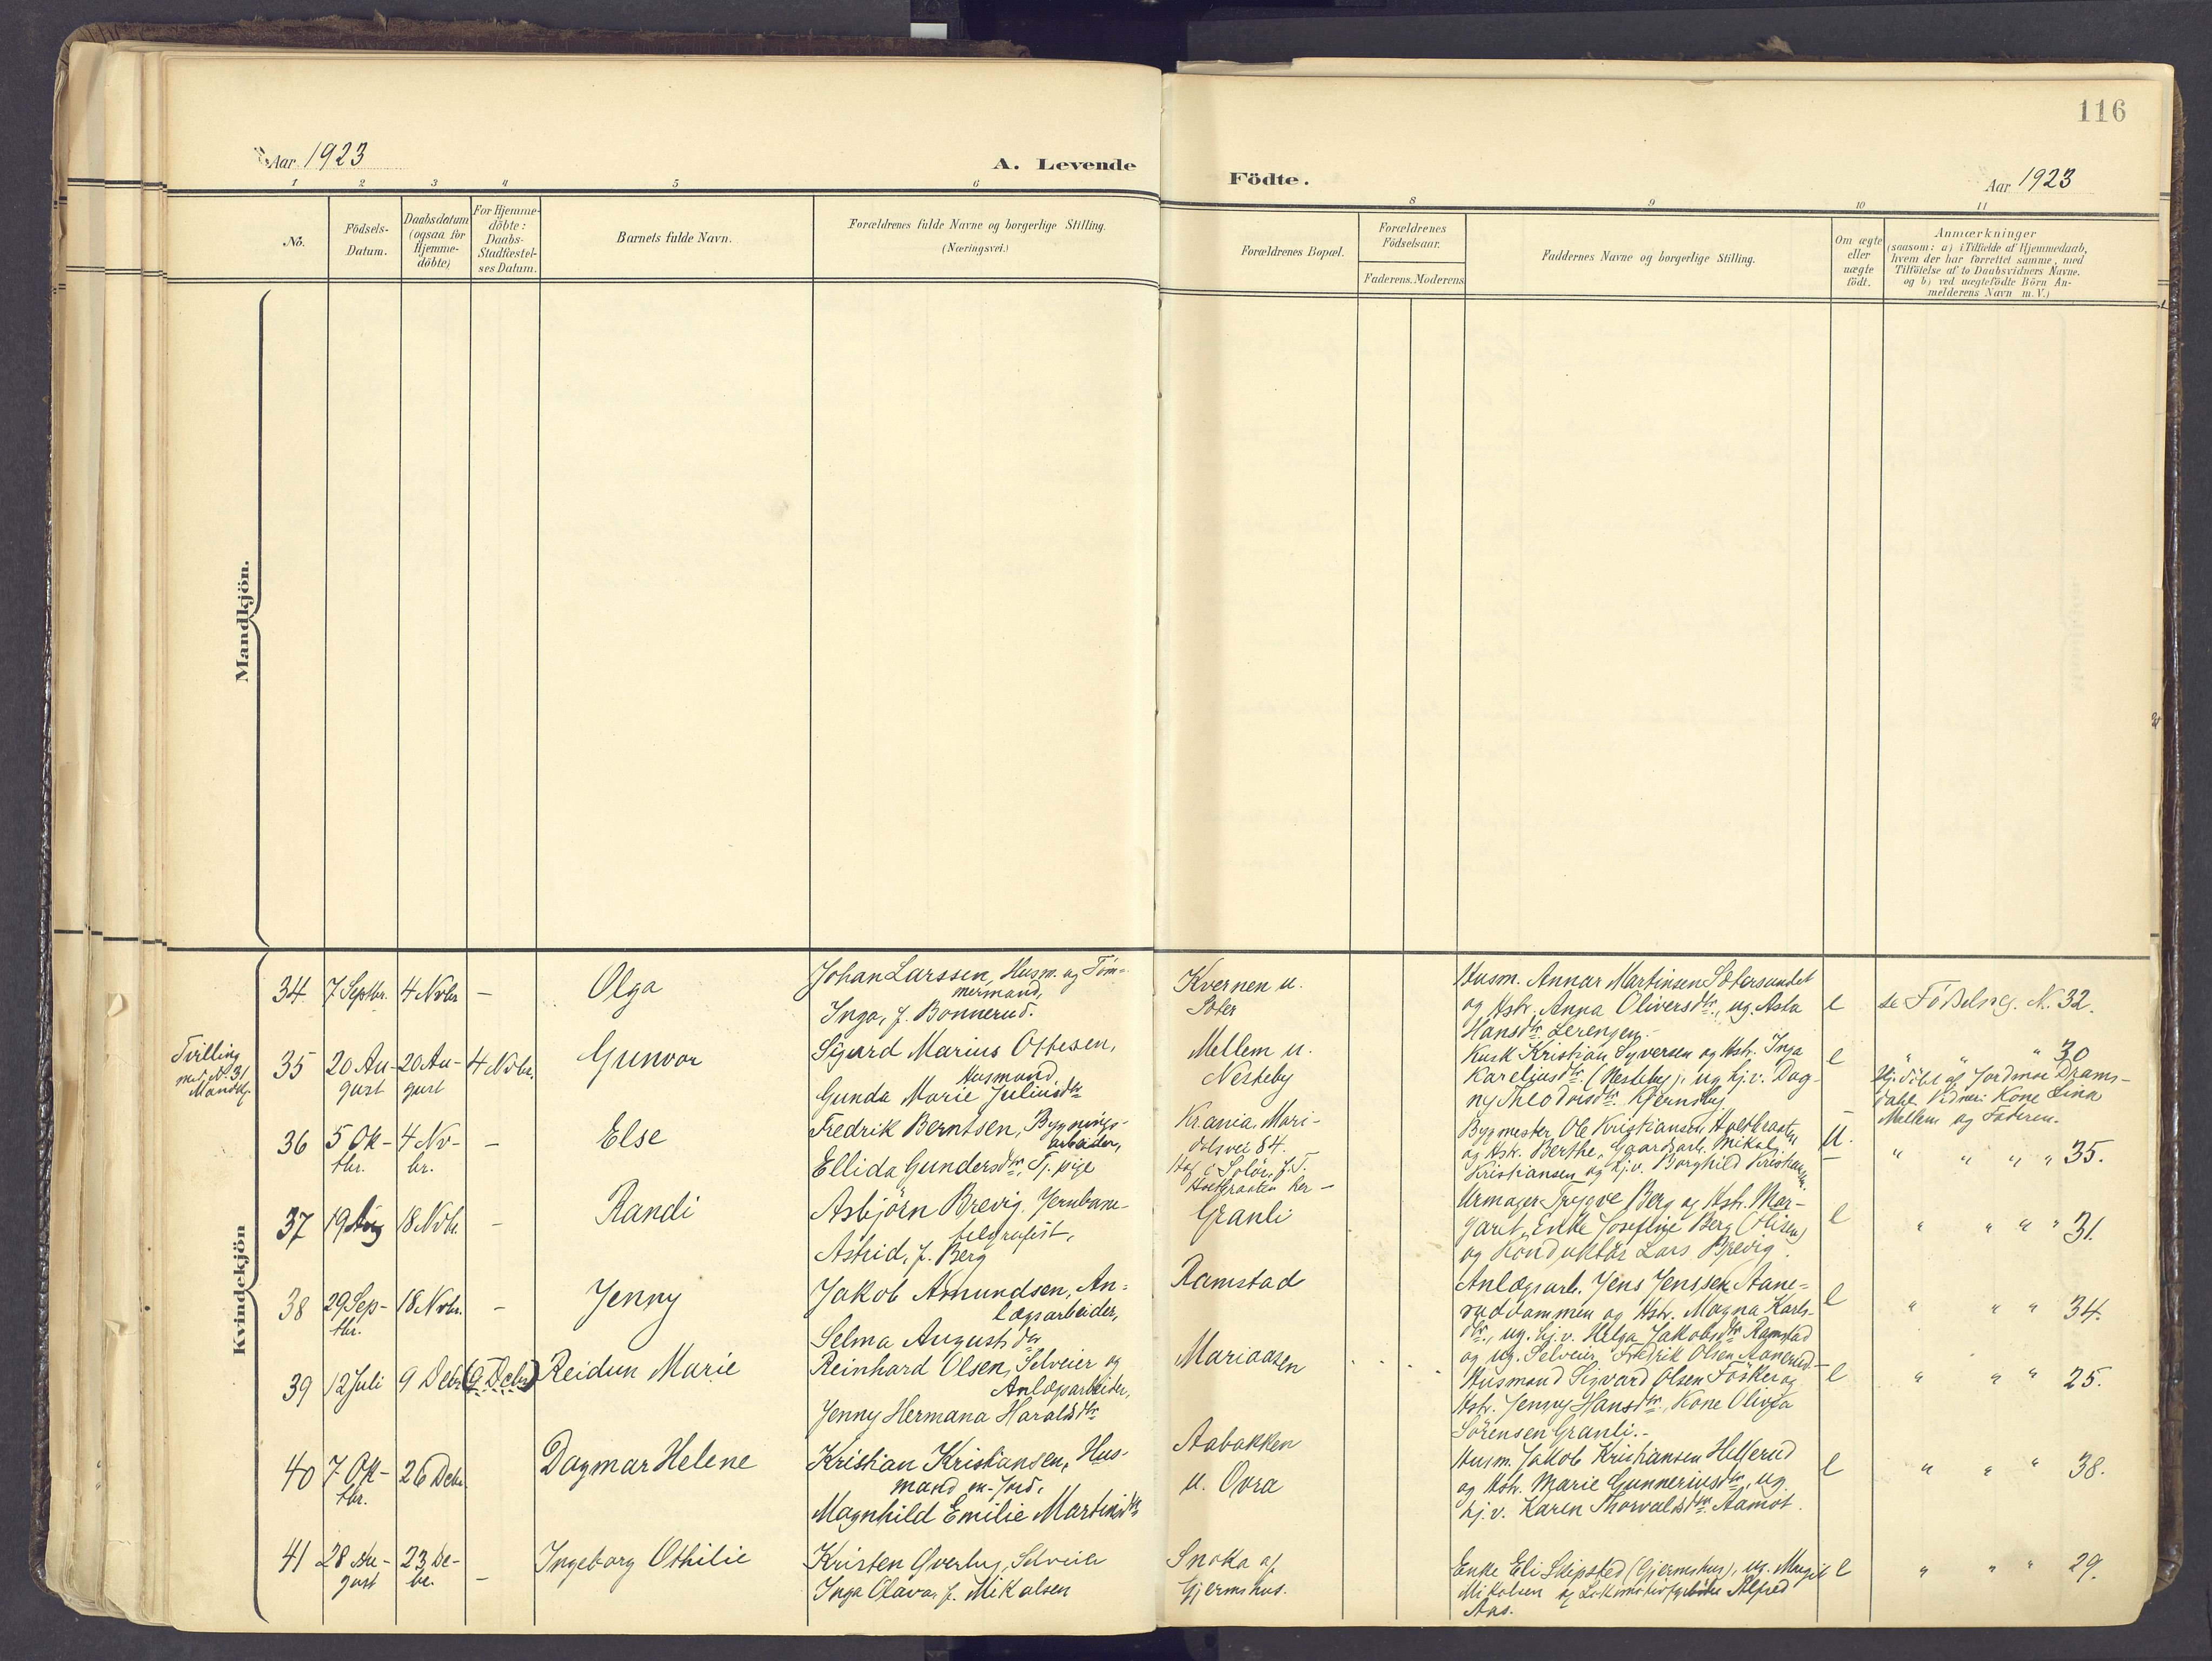 116
Aar 1923
A. Levende
Födte.
Aar 1923
1 2 3 4 5 6 8 9 10 11
No.
Födsels-
Datum.
Daabsdatum
(ogsaa for
Hjemme-
döbte)
For Hjemme-
döbte:
Daabs-
Stadfæstel-
ses Datum.
Barnets fulde Navn.
Forældrenes fulde Navne og borgerlige Stilling.
(Næringsvei.)
Forældrenes Bopæl.
Forældrenes
Födselsaar.
Faderens. Moderens
Faddernes Navne og borgerlige Stilling.
Om ægte
eller
uægte
födt.
Anmærkninger
(saasom: a) i Tilfælde af Hjemmedaab,
hvem der har forrettet samme, med
Tilföielse af to Daabsvidners Navne.
og b) ved uægtefödte Börn An-
melderens Navn m. V.)
Mandkjön.
Kvindekjön
34 7 Septbr. 4 Novbr –
Olga
Johan Larssen, Husm. og Töm-
mermand,
Inga, f. Bonnerud.
Kvernen u.
Sæter
Husm. Annar Martinsen Sætersundet
og Hstr. Anna Oliversdtr., ug. Asta
Hansdtr. Lerengen.
e
se Födselsreg. N. 32.
Tvilling
med N. 31
Mandkj.
35 20 Au-
gust
20 Au-
gust
4 Novbr.
Gunvor
Sigurd Marius Ottesen,
Husmand
Gunda Marie Juliusdtr
Mellem u.
Nesteby
Kusk Kristian Syversen og Hstr. Inga
Kareliusdtr. (Nesteby), ug. hj.v. Dag-
ny Theodorsdtr. Kjernsby
e
" " " 30
Hj.döbt af Jordmor Drams-
dahl. Vidner: Kone Lina
Mellem og Faderen.
36 5 Ok-
tbr.
4 No-
br.
–
Else
Fredrik Berntsen, Bygnings-
arbeider,
Ellida Gundersdtr., Tj. pige
Kr.ania, Mari-
dalsvei 84.
Hof i Solör, f. T.
Holtbraaten her –
Bygmester Ole Kristiansen, Holtbraaten
og Hstr. Berthe, Gaardsarb. Mikal
Kristiansen og hj.v. Borghild Kristiansen.
U.
" " " " 35.
37 19 Aug 18 Novbr. –
Randi
Asbjörn Brevig, Jernbane-
telegrafist,
Astrid, f. Berg
Granli
Urmager Trygve Berg og Hstr. Mar-
garit, Enke Josefine Berg (Olisen)
og Konduktör Lars Brevig.
e
" " " " 31.
38 29 Sep-
tbr.
18 Novbr. –
Jenny
Jakob Amundsen, An-
lægsarbeider,
Selma Augustsdtr
Ramstad
Anlægsarb. Jens Jenssen Aane-
ruddammen og Hstr. Magna Karls-
dtr., ug. hj.v. Helga Jakobsdtr Ramstad
og ug. Selveier Fredrik Olsen Aanerud.
e
" " " 34.
39 12 Juli 9 Debr (9 Debr)
Reidun Marie
Reinhard Olsen, Selveier og
Anlægsarbeider,
Jenny Hermana Haraldsdtr
Mariaasen
Husmand Sigvard Olsen Fösker og
Hstr. Jenny Hansdtr., Kone Olivia
Sörensen Granli.
e
" " " 25.
40 7 Ok-
tbr.
26 Debr.
Dagmar Helene
Kristian Kristiansen, Hus-
mand m. Jord,
Magnhild Emilie Martinsdtr
Aabakken
u. Overa
Husm. Jakob Kristiansen Hellerud
og Hstr. Marie Gunneriusdtr., ug.
hj.v. Karen Thorvaldsdtr. Aamot.
e
" " " 38.
41 28 Au-
gust
23 De-
br.
–
Ingeborg Othilie
Kristen Overby, Selveier
Inga Olava, f. Mikalsen
Snoka af
Gjermshus.
Enke Eli Skipsted (Gjermshus), ug. Margit
Mikalsen og Lokomotivfyrböter Alfred
Aas.
e
" " " 29.